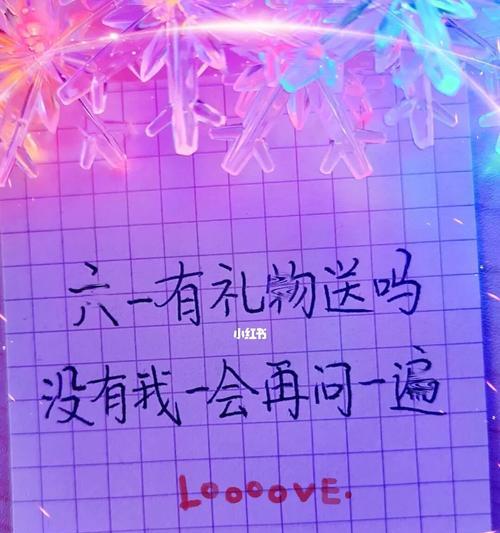 六一有礼物送吗
小红书
没有我一会再问一遍
LOOOOVE.